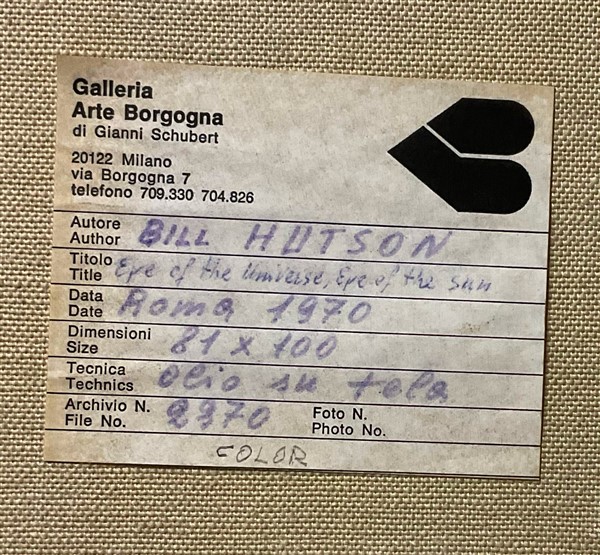 Galleria
Arte Borgogna
di Gianni Schubert
20122 Milano
via Borgogna 7
telefono 709.330 704.826
Autore
Author BILL HUTSON
Titolo
Title Eye of the Universe, Eye of the sun
Data
Date Roma 1970
Dimensioni
Size 81 x 100
Tecnica
Technics olio su tela
Archivio N. Foto N.
File No. 2370 Photo No.
COLOR